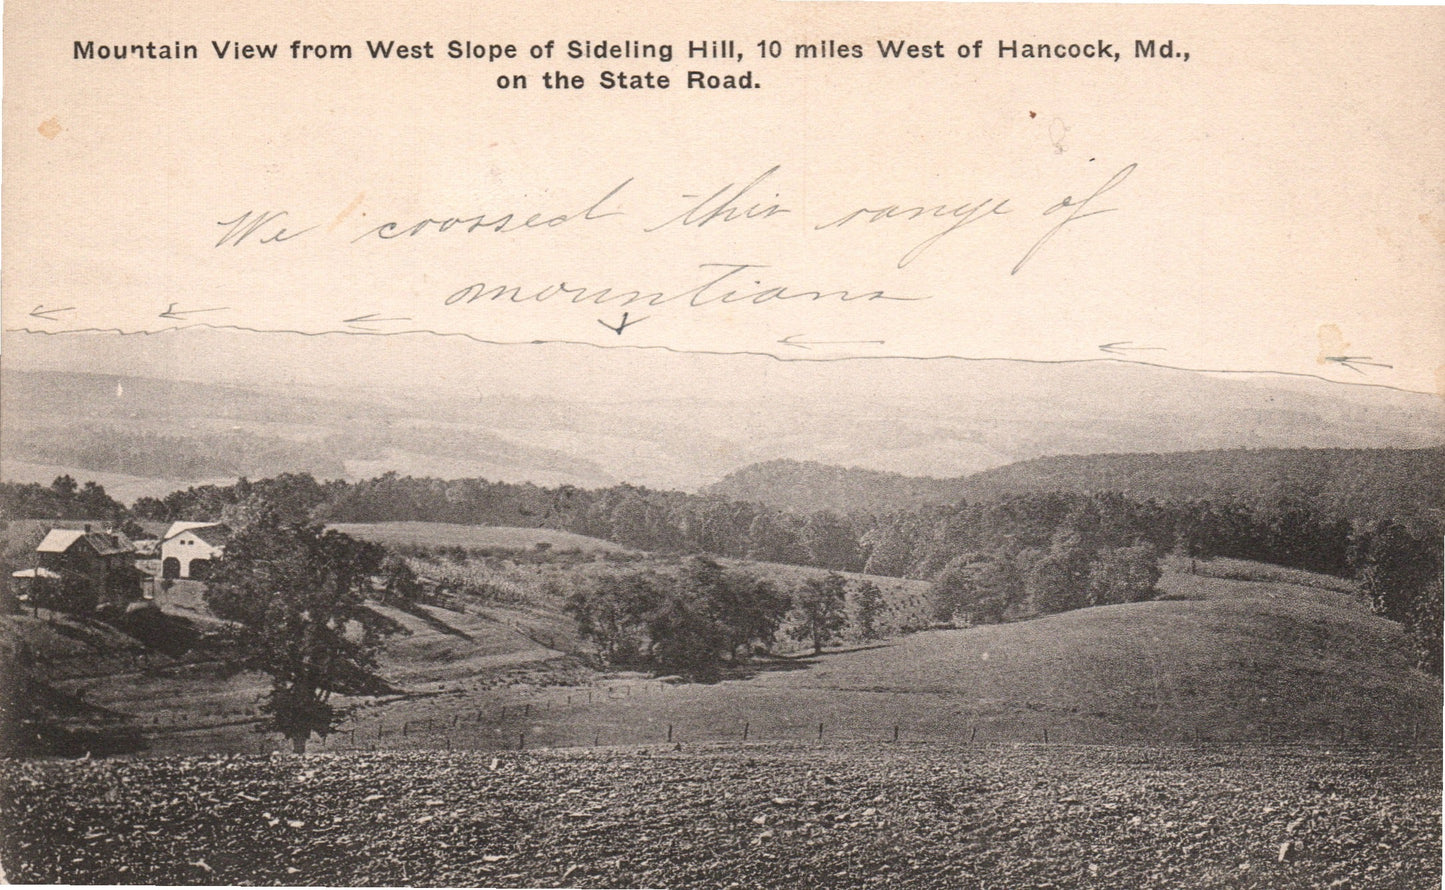 Mountain View from West Slope of Sideling Hill, 10 miles West of Hancock, Md.,
on the State Road.
We croossed this range of
mountians